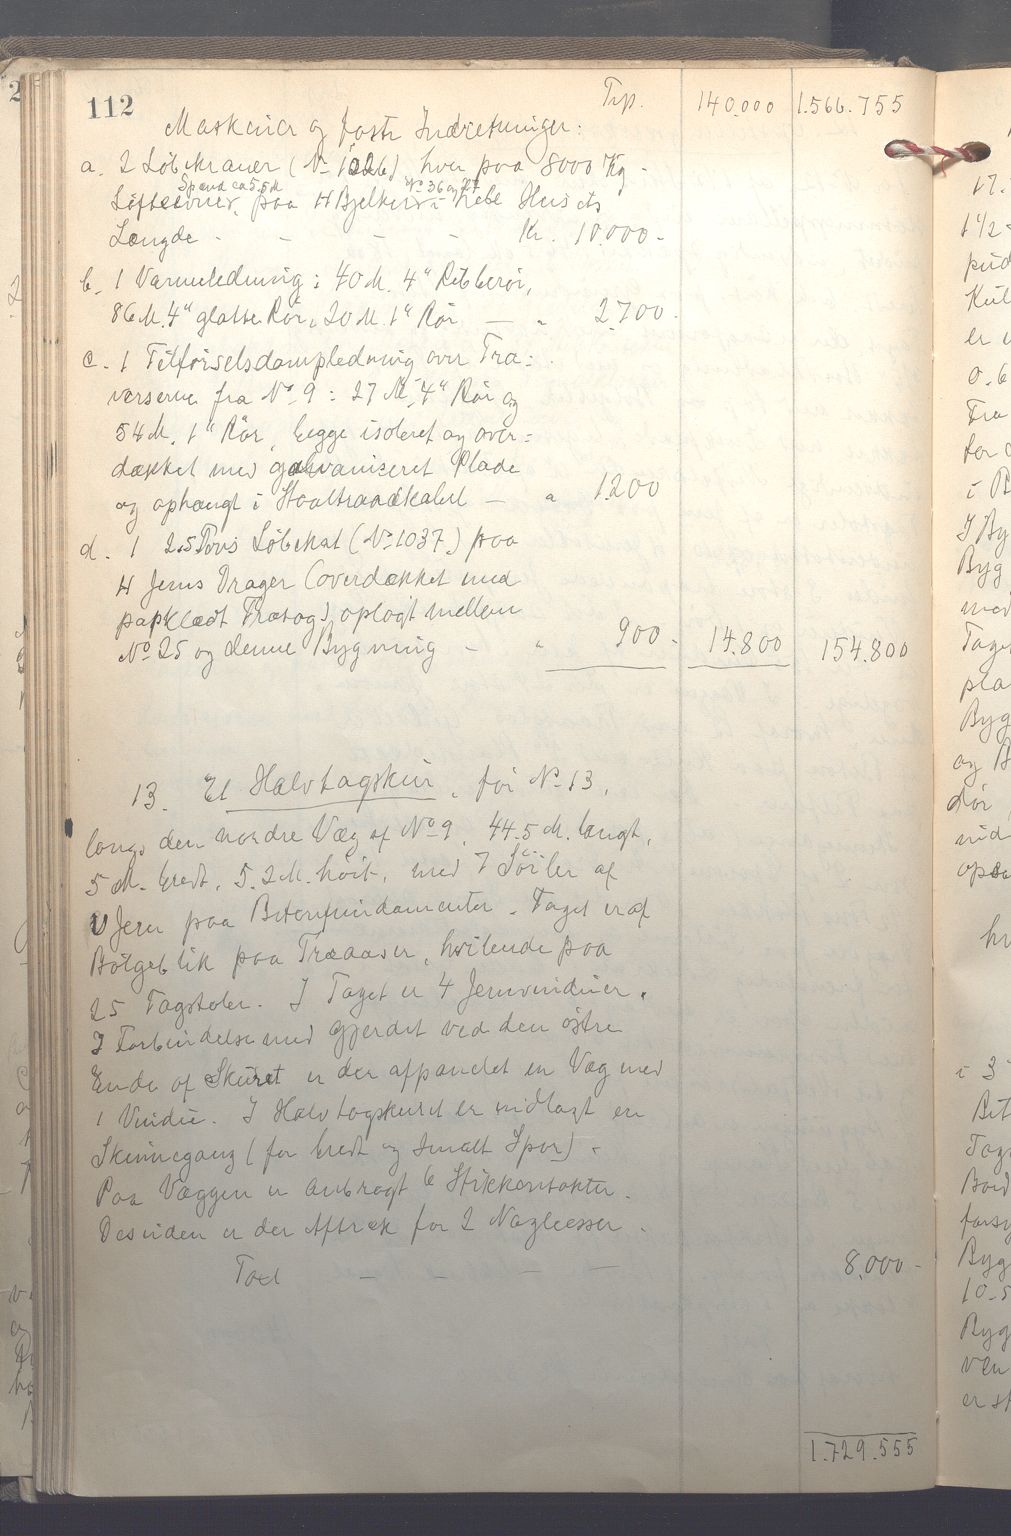 112
Trp. 140.000 1.566.755
Maskiner og faste Indretninger:
a. 2 Løbekraner (No 1026) hver paa 8000 Kg
Spænd ca 5.5 M No 36 og 37
Løfteevne, paa H Bjelker i hele Husets
Længde - - - - Kr. 10.000 -
b. 1 Varmeledning: 40 M. 4" Ribberör,
86 M. 4" glatte Rör, 20 M. 1" Rör — " 2.700 -
c. 1 Tilförselsdampledning over Tra=
verserne fra No 9: 27 M. 4" Rör og
54 M. 1" Rör, begge isoleret og over=
dækket med galvaniseret Plade
og ophængt i Staaltraadkabel — " 1.200
d. 1 2.5 Tons Løbekat (No 1037) paa
H Jerns Drager (overdækket med
papklædt Trætag), oplagt mellem
No 25 og denne Bygning - " 900 - 14.800 154.800
13. Et Halvtagskur, för No 13,
langs den nordre Væg af No 9. 44.5 M. langt,
5 M. bredt, 5.2 M. höit, med 7 Söiler af
U Jern paa Betonfundamenter. Taget er af
Bölgeblik paa Træaaser, hvilende paa
25 Tagstoler. I Taget er 4 Jernvinduer.
I Forbindelse med Gjerdet ved den östre
Ende af Skuret er der afpanelet en Væg med
1 Vindu. I Halvtagskuret er nidlagt en
Skinnegang (for bredt og smalt Spor) -
Paa Væggen er anbragt 6 Stikkontakter.
Desuden er der Aftræk for 2 Nagleesser.
Taxt — - — — 8.000 -
1.729.555